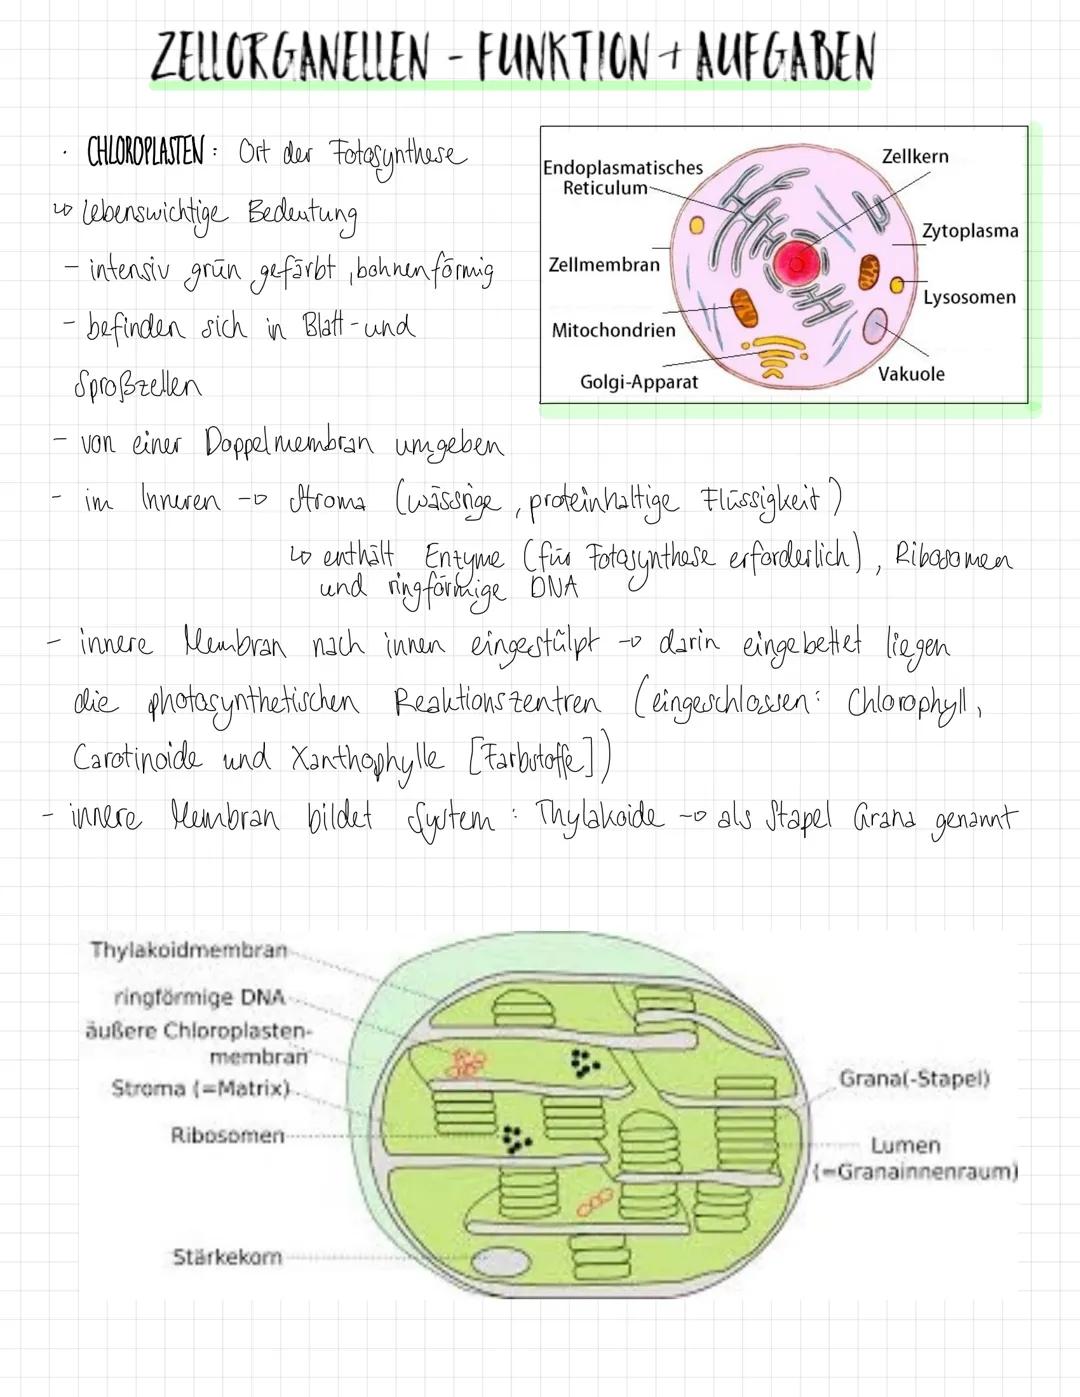 ZELLORGANELLEN - FUNKTION + AUFGABEN
· CHLOROPLASTEN: Ort der Fotosynthese
↳ lebenswichtige Bedeutung
- intensiv grün gefärbt, bohnenförmig
- befinden sich in Blatt- und
Sproßzellen
Endoplasmatisches
Reticulum
Zellkern
Zytoplasma
Zellmembran
Lysosomen
Mitochondrien
Golgi-Apparat
Vakuole
- von einer Doppelmembran umgeben
- im Inneren -> Stroma (wässrige, proteinhaltige Flüssigkeit)
↳ enthält Enzyme (für Fotosynthese erforderlich), Ribosomen
und ringförmige DNA
- innere Membran nach innen eingestülpt -> darin eingebettet liegen
die photosynthetischen Reaktionszentren (eingeschlossen: Chlorophyll,
Carotinoide und Xanthophylle [Farbstoffe])
- innere Membran bildet System: Thylakoide -> als Stapel Grana genannt
Thylakoidmembran
ringförmige DNA
äußere Chloroplasten-
membran
Stroma (=Matrix)
Ribosomen
Stärkekorn
Grana(-Stapel)
Lumen
(=Granainnenraum)